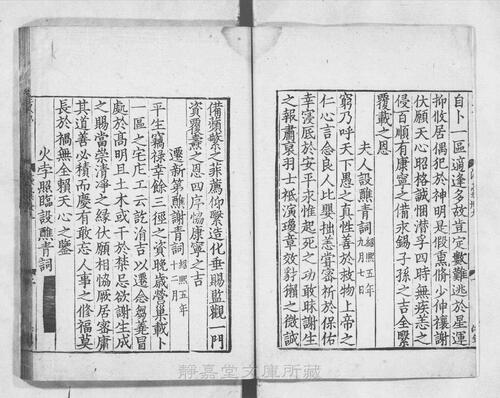 自卜一區適逢多故豈定數難逃於星運
抑攸居偶犯於神明是假熏脩少伸禳謝
伏願天心昭格誠悃潜孚四時無疾恙之
侵百順有康寧之備永錫子孫之吉全繫
覆載之恩
夫人設醮青詞紹熙五年九月七日
窮乃呼天下愚之真性善於救物上帝之
仁心言念良人比嬰拙恙嘗宻祈於保佑
幸寖底於安平永惟起死之功敢昧謝生
之報肅哀羽士祗演瓊章效豺獺之微誠
備蘋蘩之菲薦仰繫造化垂賜監觀一門
資覆燾之恩四序恊康寧之吉
遷新第醮謝青詞紹熙五年十二月
平生竊禄幸餘三徑之資晩歳營巢載卜
一區之宅庀工云訖涓吉以遷念芻蕘冒
處於髙明且土木或干於禁忌欲謝生成
之賜當崇清淨之緑伏願相恊厥居密庸
其道善必積而慶有敢忘人事之修福莫
長於禍無全賴天心之鑒
火孛照臨設醮青詞
靜嘉堂文庫所藏